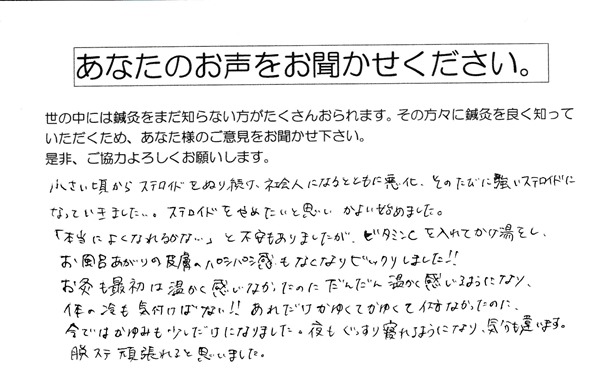 あなたのお声をお聞かせください。
世の中には鍼灸をまだ知らない方がたくさんおられます。その方々に鍼灸を良く知って
いただくため、あなた様のご意見をお聞かせ下さい。
是非、ご協力よろしくお願いします。
小さい頃からステロイドをぬり続け、社会人になるとともに悪化、そのたびに強いステロイドに
なっていきました。ステロイドをやめたいと思い かよい始めました。
「本当によくなれるかな…」と不安もありましたが、ビタミンCを入れてかけ湯をし、
お風呂あがりの皮膚のパンパン感もなくなりビックリしました!!
お灸も最初は温かく感じなかったのにだんだん温かく感じるようになり、
体の冷も気付けばない!! あれだけかゆくてかゆくて仕方なかったのに、
今ではかゆみも少しだけになりました。夜もぐっすり寝れるようになり、気分も違います。
脱ステ頑張れると思いました。